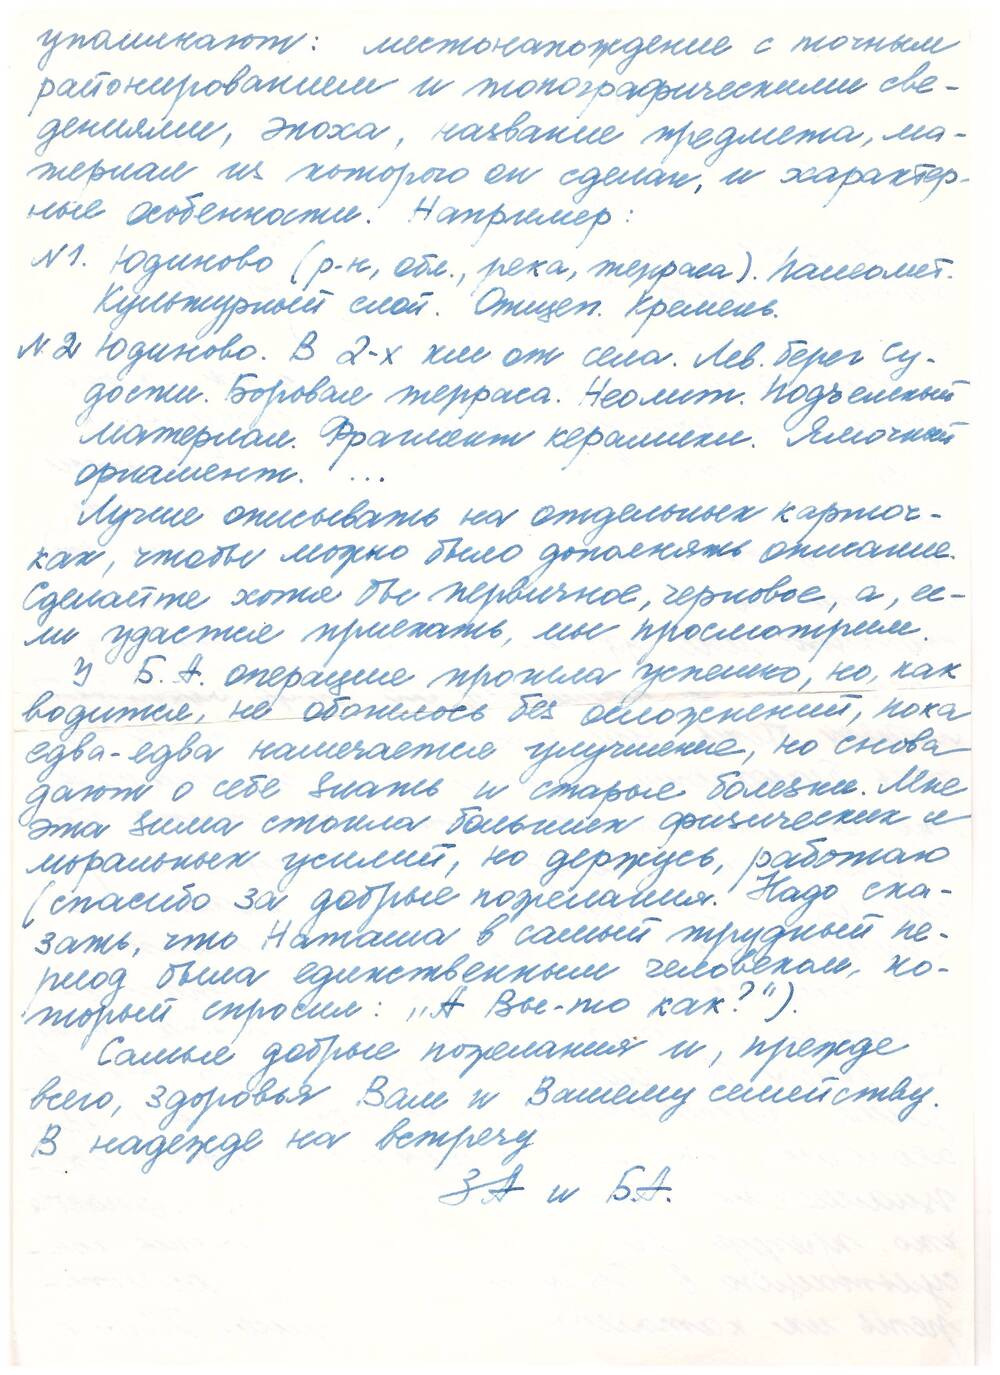 упоминают: местонахождение с точным
районированием и топографическими све-
дениями, эпоха, название предмета, ма-
териал из которого он сделан, и характер-
ные особенности. Например:
N1. Юдиново (р-н, обл., река, терраса). Палеолит.
Культурный слой. Отщеп. Кремень.
N2 Юдиново. В 2-х км от села. Лев. берег Су-
дости. Боровая терраса. Неолит. Подъемный
материал. Фрагмент керамики. Ямочный
орнамент. ...
Лучше описывать на отдельных карточ-
ках, чтобы можно было дополнять описание.
Сделайте хотя бы первичное, черновое, а, ес-
ли удастся приехать, мы просмотрим.
У Б.А. операция прошла успешно, но, как
водится, не обошлось без осложнений, пока
едва-едва намечается улучшение, но снова
дают о себе знать и старые болезни. Мне
эта зима стоила больших физических и
моральных усилий, но держусь, работаю
(спасибо за добрые пожелания. Надо ска-
зать, что Наташа в самый трудный пе-
риод была единственным человеком, ко-
торый спросил: „А Вы-то как?").
Самые добрые пожелания и, прежде
всего, здоровья Вам и Вашему семейству.
В надежде на встречу
ЗА и Б.А.